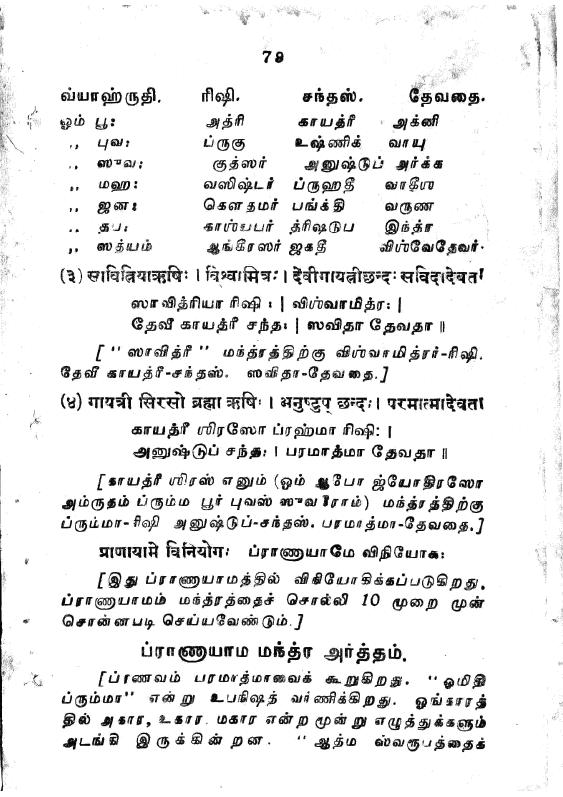 79
வ்யாஹ்ருதி. ரிஷி. சந்தஸ். தேவதை.
ஓம் பூ: அத்ரி காயத்ரீ அக்னி
,, புவ: ப்ருகு உஷ்ணிக் வாயு
,, ஸுவ: குத்ஸர் அனுஷ்டுப் அர்க்க
,, மஹ: வஸிஷ்டர் ப்ருஹதீ வாகீஶ
,, ஜன: கௌதமர் பங்க்தி வருண
,, தப: காஸ்யபர் த்ரிஷ்டுப இந்த்ர
,, ஸத்யம் ஆங்கீரஸர் ஜகதீ விஸ்வேதேவர்.
(३) सावित्रियाऋषिः । विश्वामित्रः । देवीगायत्रीछन्दः सविदादेवता
ஸாவித்ரியா ரிஷி : | விஸ்வாமித்ர: |
தேவீ காயத்ரீ சந்த: | ஸவிதா தேவதா ॥
[ " ஸாவித்ரீ " மந்த்ரத்திற்கு விஸ்வாமித்ரர்-ரிஷி.
தேவீ காயத்ரீ-சந்தஸ். ஸவிதா-தேவதை.]
(४) गायत्री सिरसो ब्रह्मा ऋषिः । अनुष्टुप् छन्दः । परमात्मादेवता
காயத்ரீ ஶிரஸோ ப்ரஹ்மா ரிஷி: |
அனுஷ்டுப் சந்த: | பரமாத்மா தேவதா ॥
[காயத்ரீ ஶிரஸ் எனும் (ஓம் ஆபோ ஜ்யோதிரஸோ
அம்ருதம் ப்ரும்ம பூர் புவஸ் ஸுவரோம்) மந்த்ரத்திற்கு
ப்ரும்மா-ரிஷி அனுஷ்டுப்-சந்தஸ். பரமாத்மா-தேவதை.]
प्राणायामे विनियोगः ப்ராணாயாமே விநியோக:
[இது ப்ராணாயாமத்தில் விநியோகிக்கப்படுகிறது.
ப்ராணாயாமம் மந்த்ரத்தைச் சொல்லி 10 முறை முன்
சொன்னபடி செய்யவேண்டும்.]
ப்ராணாயாம மந்த்ர அர்த்தம்.
[ப்ரணவம் பரமாத்மாவைக் கூறுகிறது. "ஓமிதி
ப்ரும்மா" என்று உபநிஷத் வர்ணிக்கிறது. ஓங்காரத்
தில் அகார, உகார. மகார என்ற மூன்று எழுத்துக்களும்
அடங்கி இருக்கின்றன. "ஆத்ம ஸ்வரூபத்தைக்